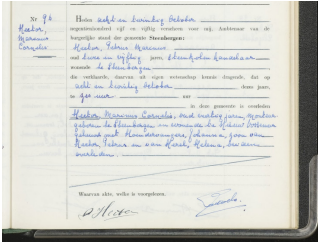 Nr 96
Hector,
Marinus
Cornelis
Heden acht en twintig October
negentienhonderd vijf en vijftig verscheen voor mij, Ambtenaar van de
burgerlijke stand der gemeente Steenbergen:
Hector, Petrus Marinus
oud twee en vijftig jaren, steenkolenhandelaar
wonende te Steenbergen
die verklaarde, daarvan uit eigen wetenschap kennis dragende, dat op
acht en twintig October dezes jaars,
te zes uur
in deze gemeente is overleden
Hector Marinus Cornelis, oud zestig jaren, monteur
geboren te Steenbergen en wonende te
gehuwd met Johanna, zoon van
Hector, Petrus en van Helena, beiden
overleden.
Waarvan akte, welke is voorgelezen.
Hector